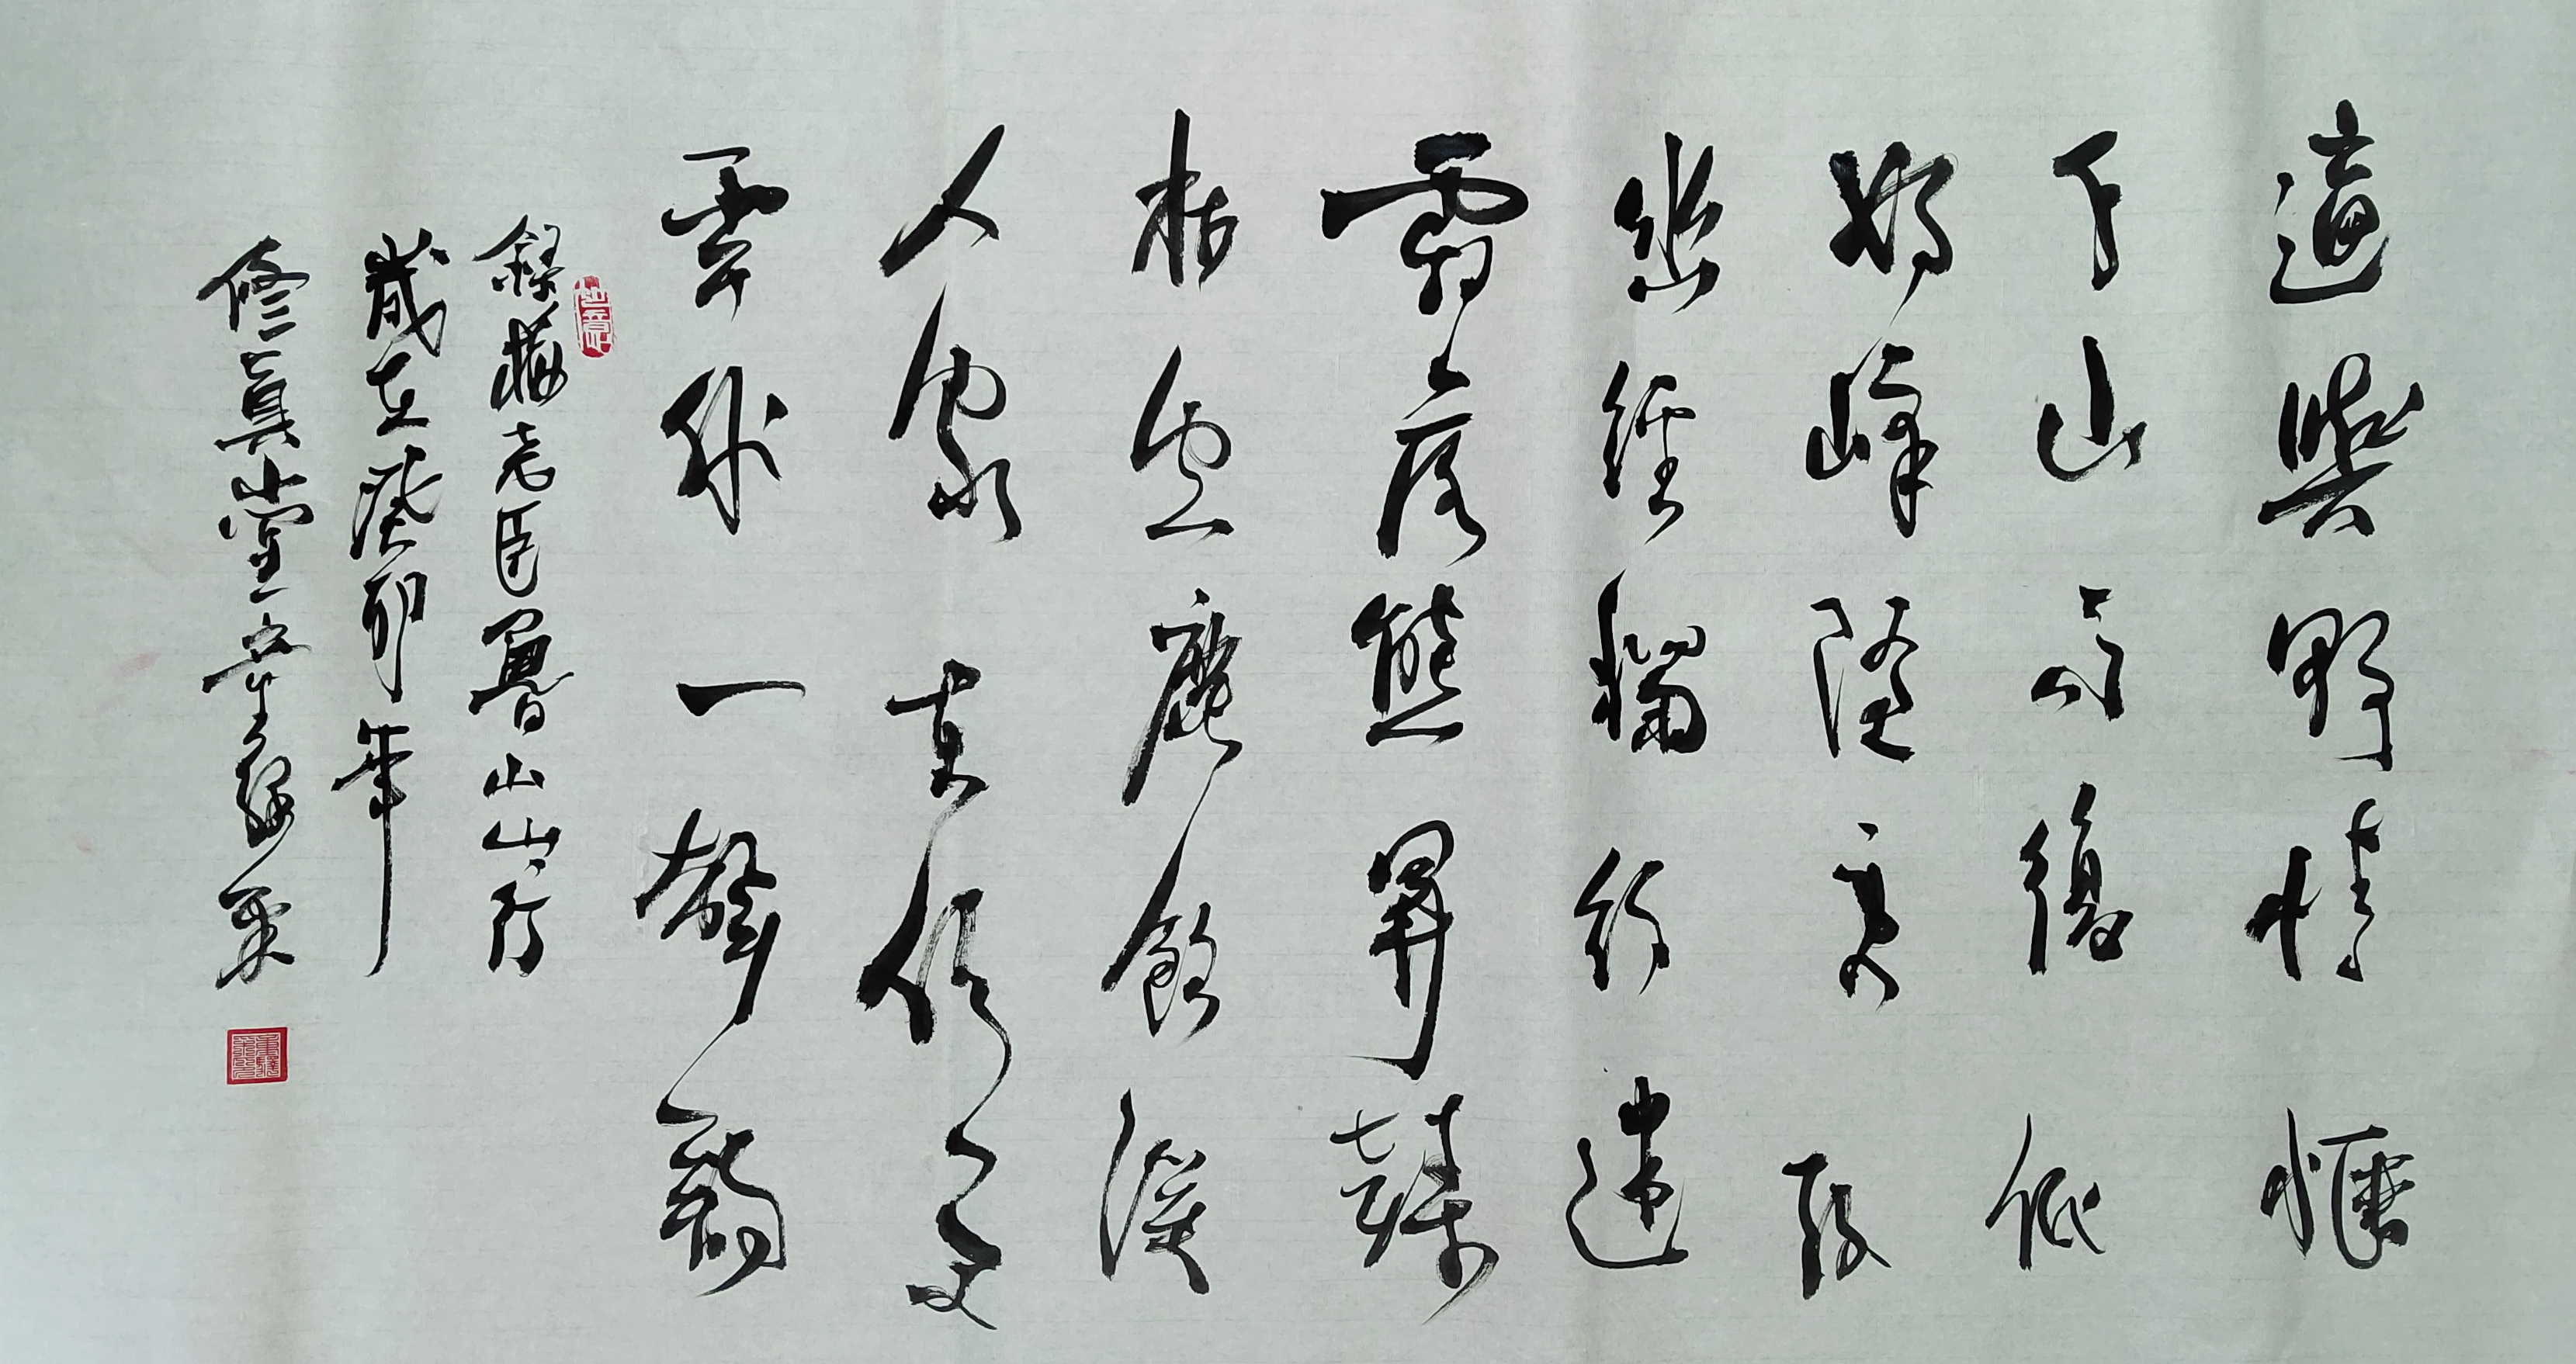 適與野情愜
千山高復低
好峰随處改
幽徑獨行迷
霜落熊昇樹
林空鹿飲溪
人家在何處
雲外一聲鷄
如意
錄梅尧臣魯山山行
歲在癸卯年
修真堂